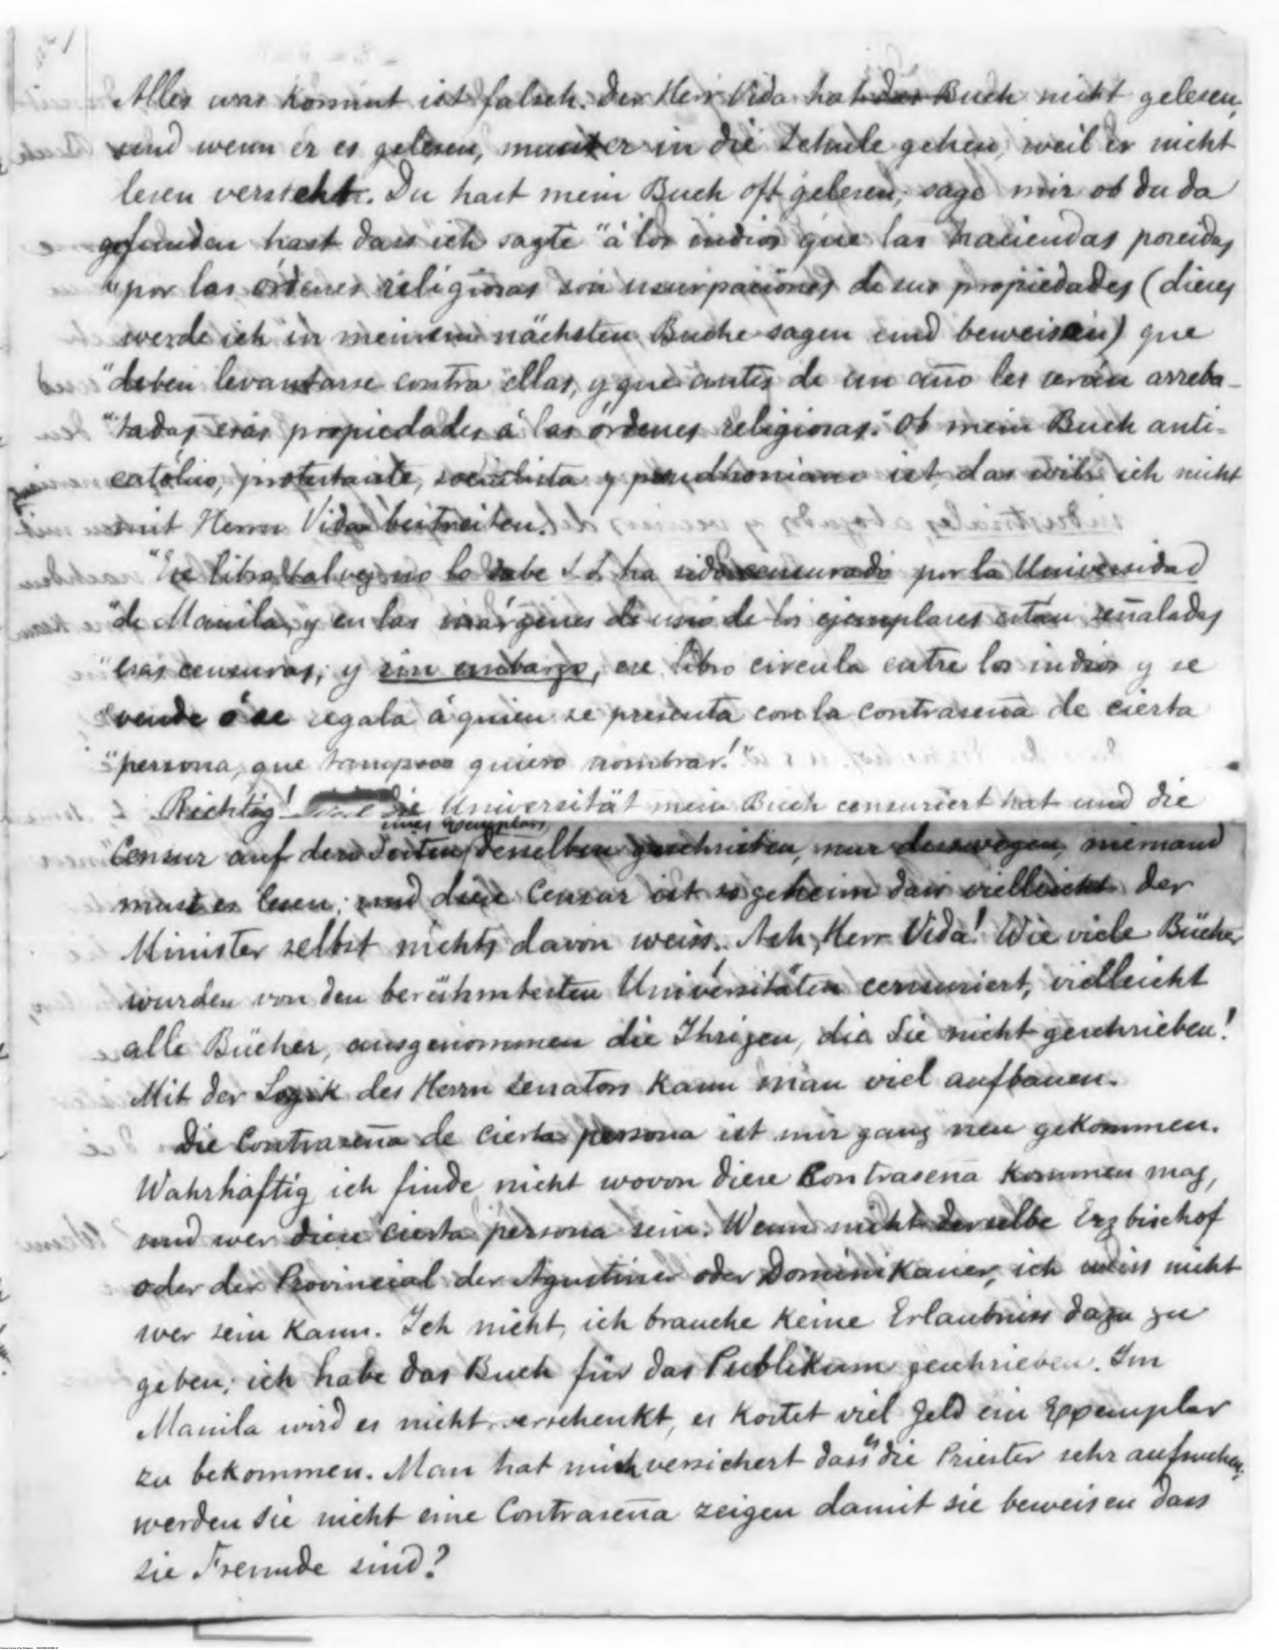 Alles was kommt ist falsch. Der Herr Vida hat das Buch nicht gelesen,
und wenn er es gelesen, muss er in die Schule gehen, weil er nicht
lesen versteht. Du hast mein Buch oft gelesen, sage mir ob du da
gefunden hast dass ich sagte "á los indios que las haciendas poseidas
"por las órdenes religiosas son usurpaciones de sus propiedades (dieses
werde ich in meinem nächsten Buche sagen und beweisen) que
"deben levantarse contra ellas, y que antes de un año les serán arreba-
"tadas esas propiedades á las órdenes religiosas." Ob mein Buch anti-
católico, protestante, socialista y proudhoniano ist, das will ich nicht
mit Herrn Vida bestreiten.
"Ese libro tal vez no lo sabe S.S. ha sido censurado por la Universidad
"de Manila, y en las márgenes de uno de los ejemplares están señaladas
"esas censuras; y sin embargo, ese libro circula entre los indios y se
"vende ó se regala á quien se presenta con la contraseña de cierta
"persona, que tampoco quiero nombrar!"
Richtig! die Universität mein Buch censuriert hat und die
eines Exemplars
Censur auf den Seiten desselben geschrieben, nur desswegen, niemand
muss es lesen; und diese Censur ist so geheim dass vielleicht der
Minister selbst nichts davon weiss. Ach, Herr Vida! Wie viele Bücher
wurden von den berühmtesten Universitäten censuriert, vielleicht
alle Bücher, ausgenommen die Ihrigen, die Sie nicht geschrieben!
Mit der Logik des Herrn Senators kann man viel aufbauen.
Die Contraseña de cierta persona ist mir ganz neu gekommen.
Wahrhaftig ich finde nicht wovon diese Contraseña kommen mag,
und wer diese cierta persona sein. Wenn nicht derselbe Erzbischof
oder der Provincial der Agustiner oder Dominikaner, ich weiss nicht
wer sein kann. Ich nicht, ich brauche keine Erlaubniss dazu zu
geben; ich habe das Buch für das Publikum geschrieben. Im
Manila wird es nicht verschenkt, es kostet viel Geld ein Exemplar
zu bekommen. Man hat mich versichert dass es die Priester sehr aufsuchen;
werden Sie nicht eine Contraseña zeigen damit sie beweisen dass
sie Freunde sind?